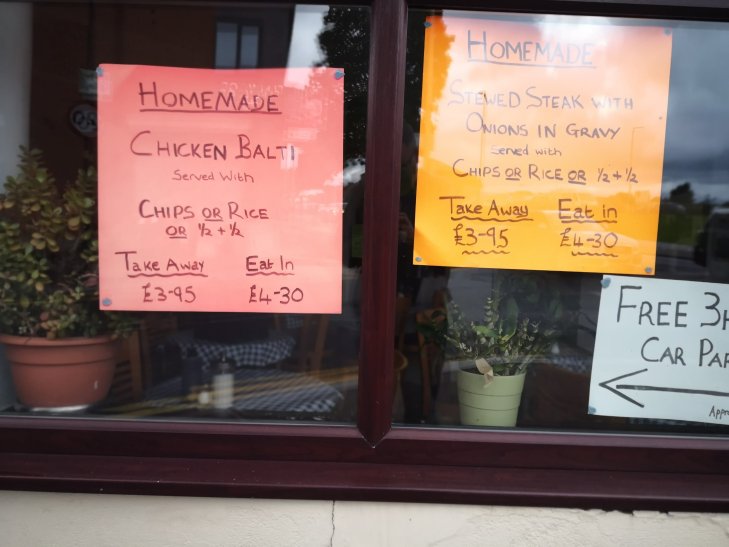 HOMEMADE
CHICKEN BALTI
Served With
CHIPS OR RICE
OR 1/2 + 1/2
TAKE AWAY Eat In
£3-95 £4-30
HOMEMADE
STEWED STEAK WITH
ONIONS IN GRAVY
Served with
CHIPS OR RICE OR 1/2 + 1/2
Take Away Eat in
£3-95 £4-30
FREE 3
CAR PAR